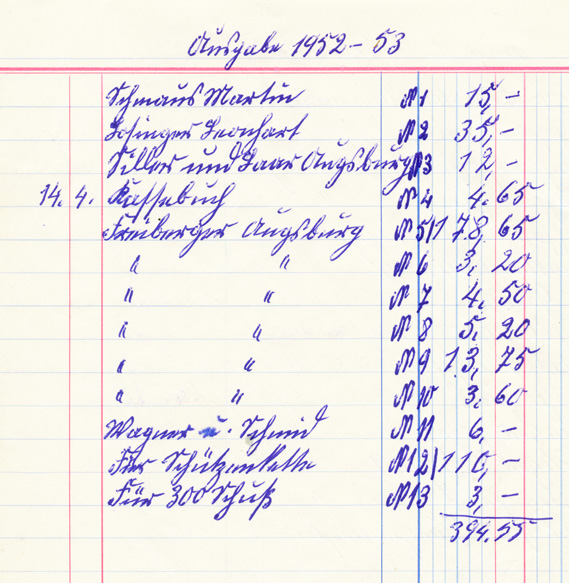 Ausgabe 1952 - 53
Schmaus Martin N 1 15,-
Losinger Leonhart N 2 35,-
Siller und Laar Augsburg N 3 12,-
14. 4. Kassebuch N 4 4.65
Freiberger Augsburg N 5 | 178,65
" " N 6 3,20
" " N 7 4,50
" " N 8 5,20
" " N 9 13,75
" " N 10 3,60
Wagner u. Schmid N 11 6,-
Für Schützenkette N 12 | 110,-
Für 300 Schuß N 13 3,-
394.55